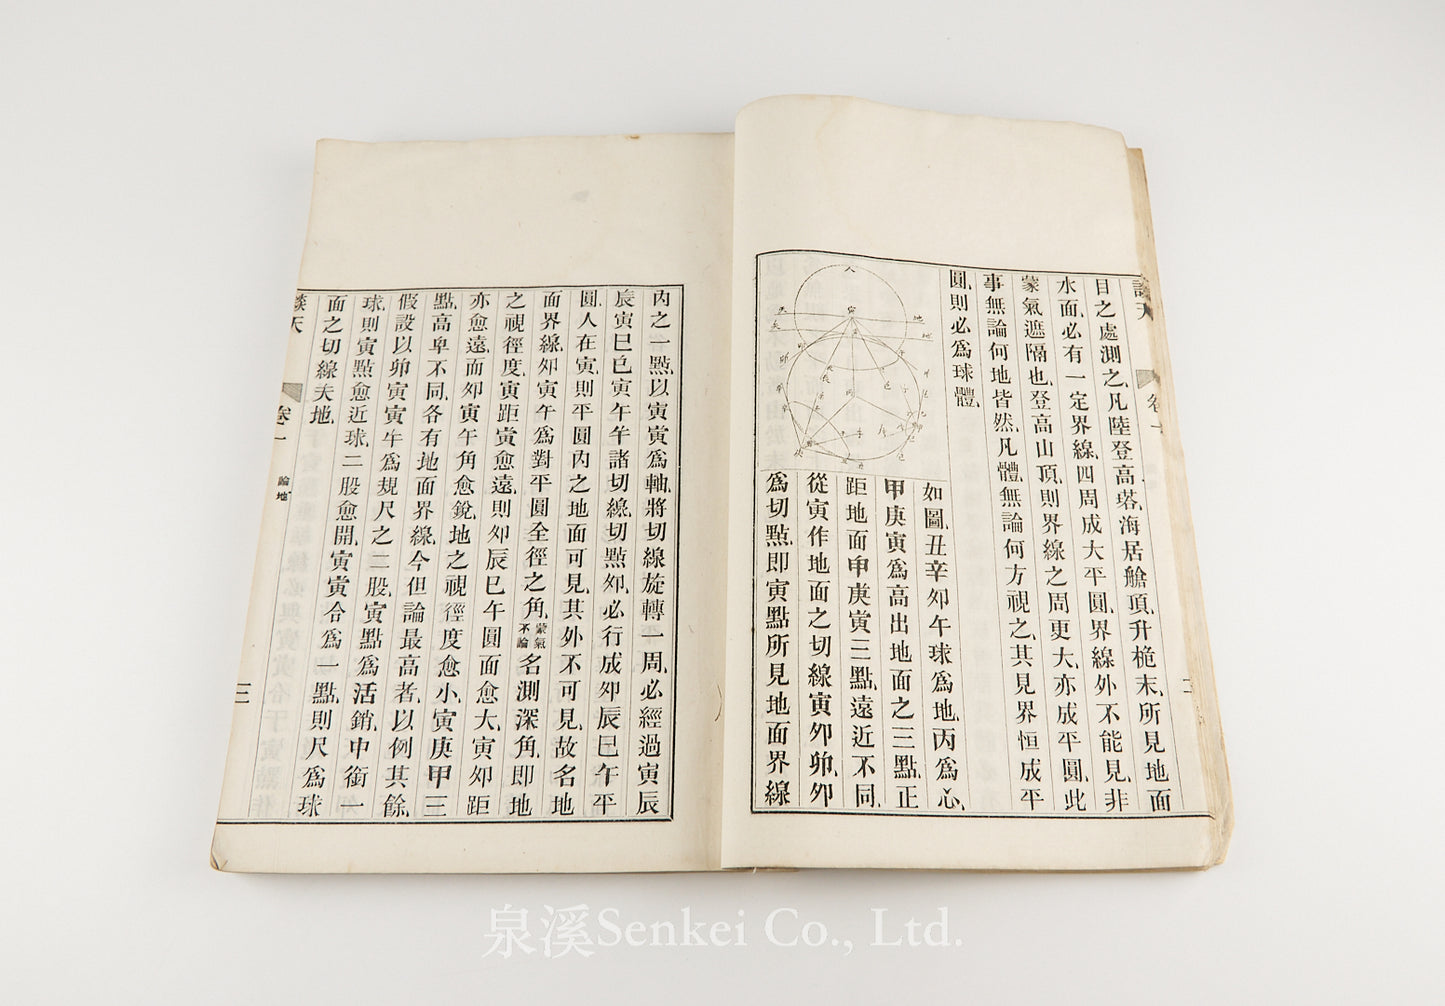 談天 卷一 二
目之處測之、凡陸登高塔、海居艙頂、升桅末、所見地面
水面、必有一定界線、四周成大平圓、界線外不能見、非
蒙氣遮隔也、登高山頂、則界線之周更大、亦成平圓、此
事無論何地皆然、凡體無論何方視之、其見界恒成平
圓、則必爲球體、
人
寅
地
地
如圖丑辛夘午球爲地、丙爲心、
甲庚寅爲高出地面之三點、正
距地面申庚寅三點、遠近不同、
從寅作地面之切線寅夘卯、夘
爲切點、即寅點所見地面界線
內之一點、以寅寅爲軸、將切線旋轉一周、必經過寅辰
辰寅巳巳寅午午諸切線、切點夘、必行成夘辰巳午平
圓、人在寅、則平圓內之地面可見、其外不可見、故名地
面界線、夘寅午爲對平圓全徑之角、蒙氣不論名測深角、即地
之視徑度、寅距寅愈遠、則夘辰巳午圓面愈大、寅夘距
亦愈遠、而夘寅午角愈銳、地之視徑度愈小、寅庚甲三
點、高卑不同、各有地面界線、今但論最高者、以例其餘、
假設以卯寅寅午爲規尺之二股、寅點爲活銷、中銜一
球、則寅點愈近球、二股愈開、寅寅合爲一點、則尺爲球
面之切線、夫地、
談天 卷一 論地 三
泉溪Senkei Co., Ltd.